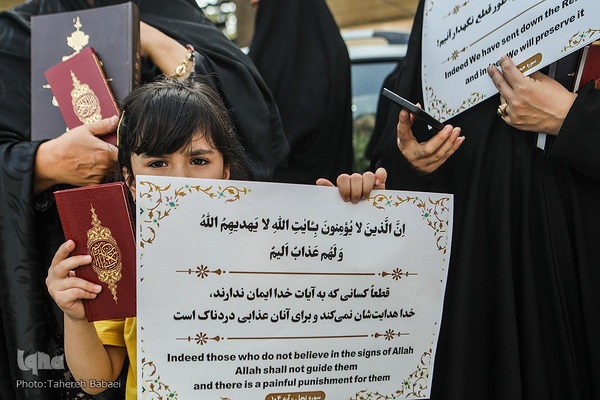 طور قطع نگهدار آنیم!
Indeed We have sent down the Re
and in We will preserve it
سوره
اِنَّ الَّذینَ لا یُؤمِنُونَ بِـٔایٰتِ اللّٰهِ لا یَهدیهِمُ اللّٰهُ
وَلَهُم عَذابٌ اَلیمٌ
قطعاً کسانی که به آیات خدا ایمان ندارند،
خدا هدایت‌شان نمی‌کند و برای آنان عذابی دردناک است
Indeed those who do not believe in the signs of Allah
Allah shall not guide them
and there is a painful punishment for them
سوره نحل، آیه ۱۰۴
iqna
Photo: Tahereh Babaei